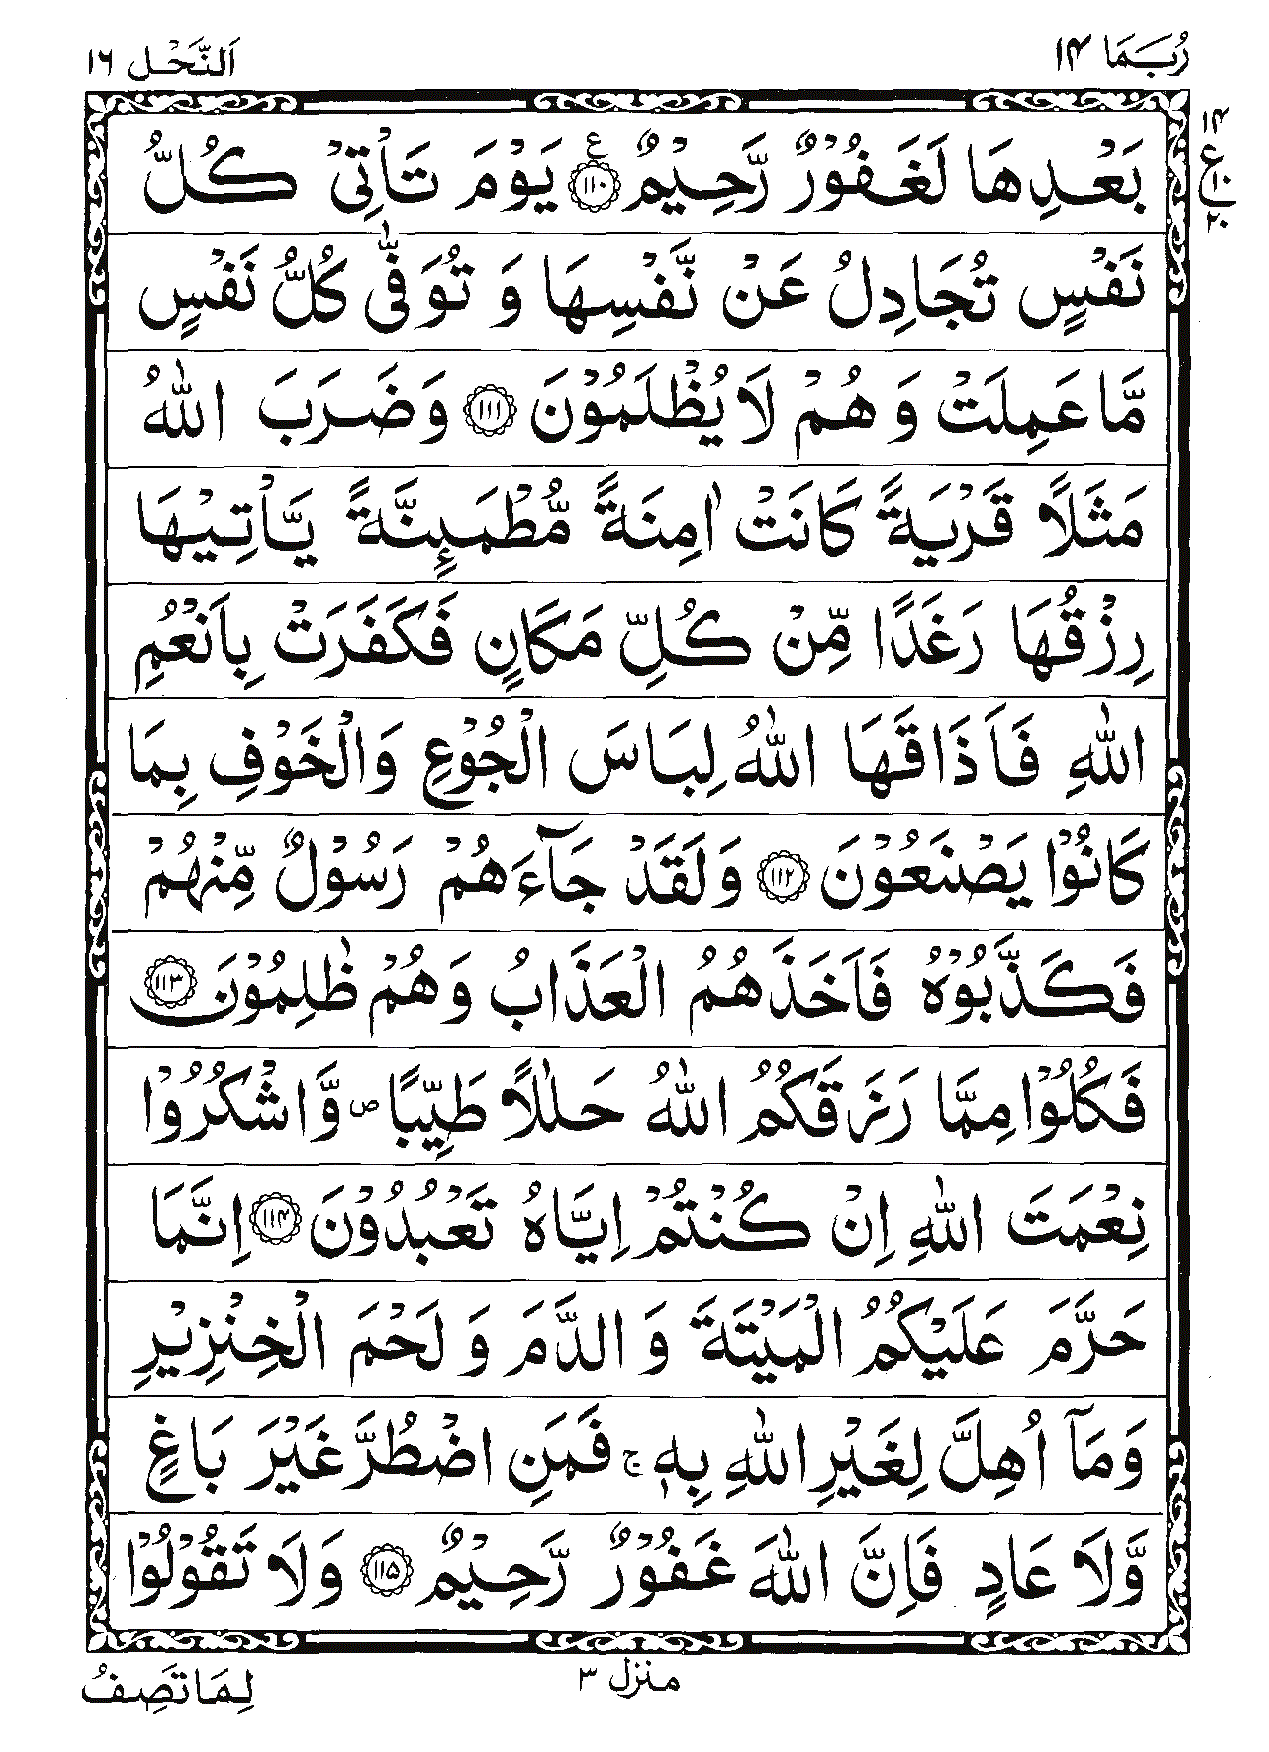 رُبَمَا ١۴
اَلنَّحْل ١٦
١۴
ع
١٠
٢٠
بَعْدِهَا لَغَفُوْرٌ رَّحِيْمٌ ۧ ﴿١١٠﴾ يَوْمَ تَاْتِىْ كُلُّ
نَفْسٍ تُجَادِلُ عَنْ نَّفْسِهَا وَ تُوَفّٰى كُلُّ نَفْسٍ
مَّا عَمِلَتْ وَ هُمْ لَا يُظْلَمُوْنَ ﴿١١١﴾ وَضَرَبَ اللّٰهُ
مَثَلًا قَرْيَةً كَانَتْ اٰمِنَةً مُّطْمَئِنَّةً يَّاْتِيْهَا
رِزْقُهَا رَغَدًا مِّنْ كُلِّ مَكَانٍ فَكَفَرَتْ بِاَنْعُمِ
اللّٰهِ فَاَذَاقَهَا اللّٰهُ لِبَاسَ الْجُوْعِ وَالْخَوْفِ بِمَا
كَانُوْا يَصْنَعُوْنَ ﴿١١٢﴾ وَلَقَدْ جَآءَهُمْ رَسُوْلٌ مِّنْهُمْ
فَكَذَّبُوْهُ فَاَخَذَهُمُ الْعَذَابُ وَهُمْ ظٰلِمُوْنَ ﴿١١٣﴾
فَكُلُوْا مِمَّا رَزَقَكُمُ اللّٰهُ حَلٰلًا طَيِّبًا ص وَّاشْكُرُوْا
نِعْمَتَ اللّٰهِ اِنْ كُنْتُمْ اِيَّاهُ تَعْبُدُوْنَ ﴿١١۴﴾ اِنَّمَا
حَرَّمَ عَلَيْكُمُ الْمَيْتَةَ وَ الدَّمَ وَ لَحْمَ الْخِنْزِيْرِ
وَمَآ اُهِلَّ لِغَيْرِ اللّٰهِ بِهٖ ج فَمَنِ اضْطُرَّ غَيْرَ بَاغٍ
وَّلَا عَادٍ فَاِنَّ اللّٰهَ غَفُوْرٌ رَّحِيْمٌ ﴿١١۵﴾ وَلَا تَقُوْلُوْا
منزل ٣
لِمَا تَصِفُ